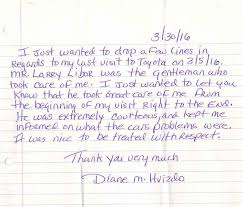 3/30/16
I Just wanted to drop a few lines in
Regards to my last visit to Toyota on 3/5/16.
MR. Larry Libor was the gentleman who
took care of me. I Just wanted to let you
Know that he took great care of me from
the beginning of my visit Right to the End.
He was extremely courteous and kept me
informed on what the cars problems were.
It was nice to be treated with respect.
Thank you very much
Diane M. Huizdo